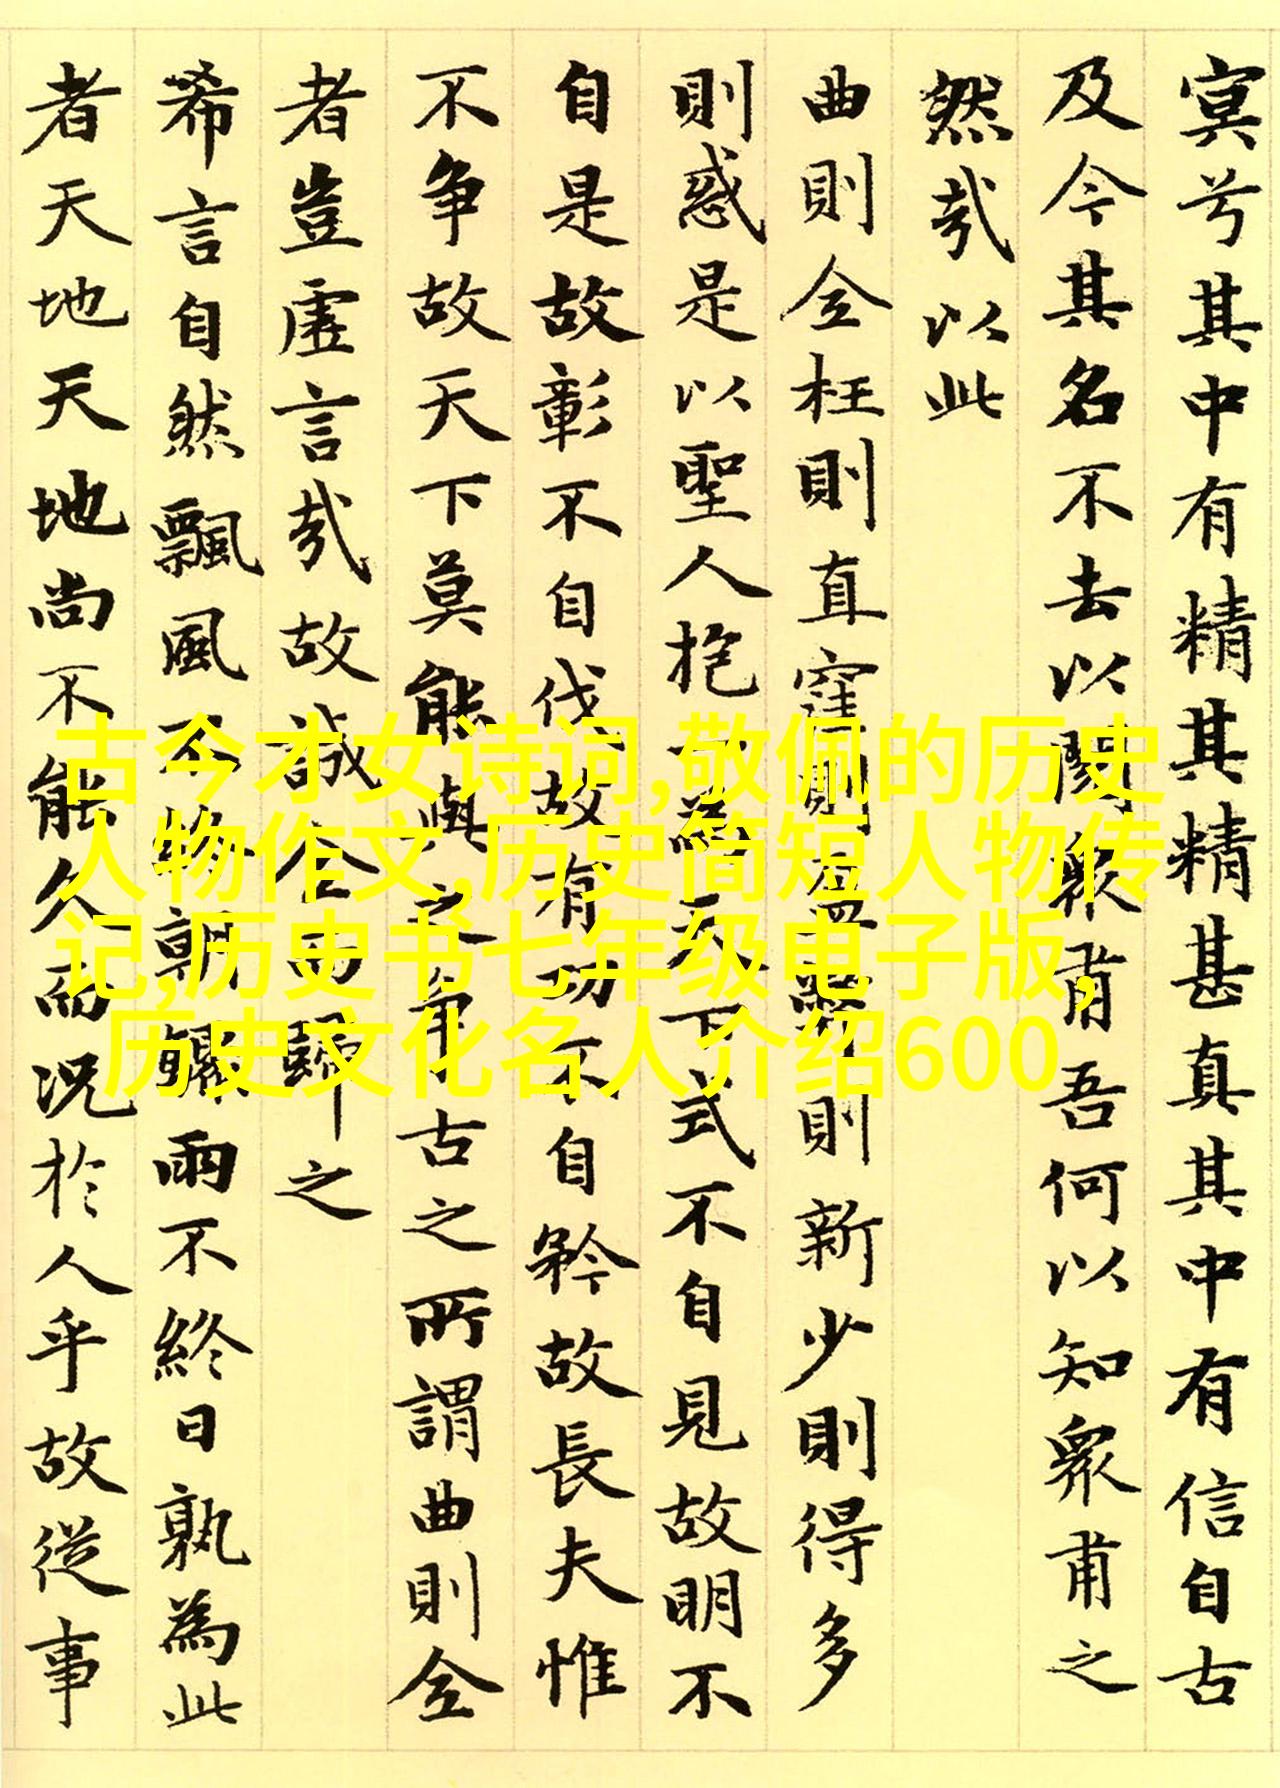 冥兮其中有精其精甚真其中有信自古
及今其名不去以閱衆甫吾何以知衆甫之
然哉以此
曲則全枉則直窪則盈弊則新少則得多
則惑是以聖人抱一為天下式不自見故明不
自是故彰不自伐故有功不自矜故長夫惟
不争故天下莫能與之争古之所謂曲則全
者豈虛言哉故誠全而歸之
希言自然飄風不終朝驟雨不終日孰為此
者天地天地尚不能久而况於人乎故從事
古今才女诗词,敬佩的历史
人物作文,历史简短人物传
记,历史书七年级电子版,
历史文化名人介绍600